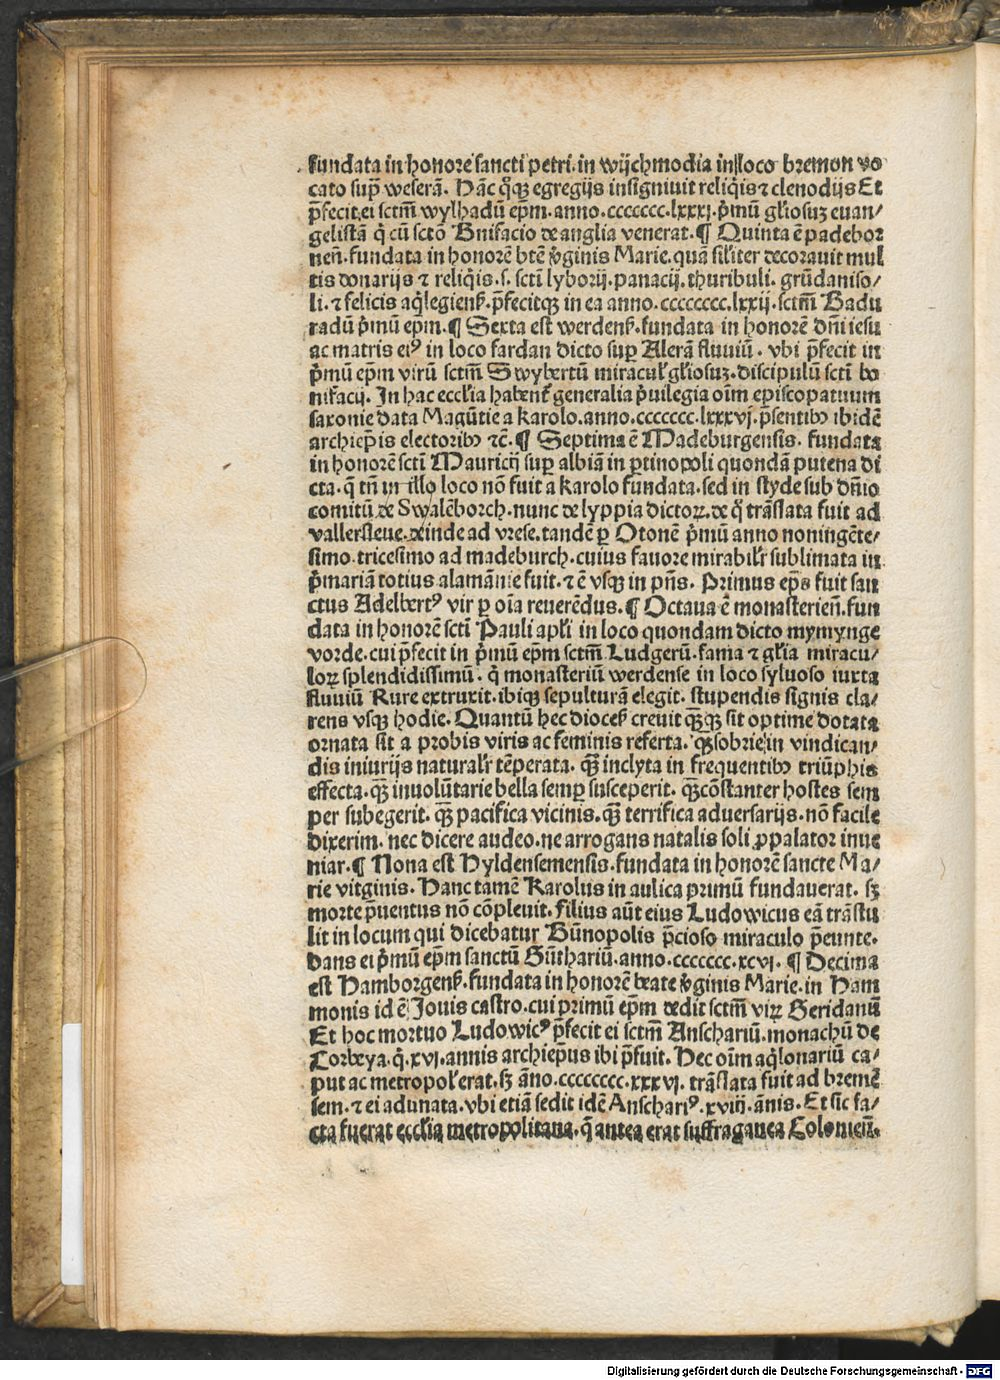 fundata in honore sancti petri. in wijchmodia in loco bremon vo
cato sup̄ weserā. Hāc qͦqꝫ egregijs insigniuit reliqͥis ⁊ clenodijs Et
p̄fecit ei sctm̄ wylhadū ep̄m. anno. ccccccc. lxxxj. pͥmū gl̄iosuꝫ euan⸗
gelistā qͥ cū sctō Bnifacio de anglia venerat. ¶ Quinta ē padebor
neñ. fundata in honorē btē vͥginis Marie. quā sil̓iter decorauit mul
tis donarijs ⁊ reliqͥis. s. scti̅ lyborij. panacij. thuribuli. grūdaniso⸗
li. ⁊ felicis aqͥlegienẜ. p̄fecitqꝫ in ea anno. cccccccc. lxxij. sctm̄ Badu
radū pͥmū ep̄m. ¶ Sexta est werdenẜ. fundata in honorē dn̄i iesu
ac matris eiꝰ in loco fardan dicto suꝑ Alerā fluuiū. vbi p̄fecit in
pͥmū ep̄m virū sctm̄ Swybertū miracul̓ gl̄iosuꝫ. discipulū scti̅ bo
nifacij. In hac eccl̄ia habenẗ generalia pͥuilegia oīm episcopatuum
saxonie data Magūtie a karolo. anno. ccccccc. lxxxvj. p̄sentibꝰ ibidē
archiep̄is electoribꝰ ⁊c̄. ¶ Septima ē Madeburgensis. fundata
in honorē scti̅ Mauricij suꝑ albiā in ꝑtinopoli quondā putena di
cta. q̄ tn̄ in illo loco nō fuit a karolo fundata. sed in styde sub dn̄io
comitū de Swalēborch. nunc de lyppia dictoꝝ. de qͦ trāslata fuit ad
vallersleue. deinde ad vrese. tandē ꝑ Otonē pͥmū anno noningēte⸗
simo. tricesimo ad madeburch. cuius fauore mirabil̓r sublimata in
pͥmariā totius alamānie fuit. ⁊ ē vsqꝫ in pn̄s. Primus ep̄s fuit san
ctus Adelbertꝰ vir ꝑ oīa reuerēdus. ¶ Octaua ē monasterieñ. fun
data in honorē scti̅ Pauli apl̄i in loco quondam dicto mymynge
vorde. cui p̄fecit in pͥmū ep̄m sctm̄ Ludgerū. fama ⁊ gl̄ia miracu⸗
loꝝ splendidissimū. qͥ monasteriū werdense in loco syluoso iuxta
fluuiū Rure extruxit. ibiqꝫ sepulturā elegit. stupendis signis cla⸗
rens vsqꝫ hodie. Quantū hec diocesẜ creuit qꝫqꝫ sit optime dotata
ornata sit a probis viris ac feminis referta. qꝫ sobrie in vindican⸗
dis iniurijs natural̓r tēperata. qꝫ inclyta in frequentibꝰ triūphis
effecta. qꝫ inuolūtarie bella semꝑ susceperit. qꝫ cōstanter hostes sem
per subegerit. qꝫ pacifica vicinis. qꝫ terrifica aduersarijs. nō facile
dixerim. nec dicere audeo. ne arrogans natalis soli ꝓpalator inue
niar. ¶ Nona est Hyldensemensis. fundata in honorē sancte Ma⸗
rie vitginis. Hanc tamē Karolus in aulica primū fundauerat. sꝫ
morte p̄uentus nō cōpleuit. filius aūt eius Ludowicus eā trāstu
lit in locum qui dicebatur Būnopolis p̄cioso miraculo p̄eunte.
dans ei pͥmū ep̄m sanctū Gūthariū. anno. ccccccc. xcvj. ¶ Decima
est Hamborgenẜ. fundata in honorē beate vͥginis Marie. in Ham
monis id ē Jouis castro. cui primū ep̄m dedit sctm̄ viꝝ Geridanū
Et hoc mortuo Ludowicꝰ p̄fecit ei sctm̄ Anschariū. monachū de
Corbeya. qͥ. xvj. annis archiep̄us ibi p̄fuit. Hec oīm aqͥlonariū ca⸗
put ac metropol̓ erat. sꝫ āno. cccccccc. xxxvj. trāslata fuit ad bremē
sem. ⁊ ei adunata. vbi etiā sedit idē Ansphariꝰ. xviij. ānis. Et sic fa⸗
cta fuerat eccl̄ia metropolitana. q̄ antea erat suffraganea Colonieñ.
Digitalisierung gefördert durch die Deutsche Forschungsgemeinschaft - DFG